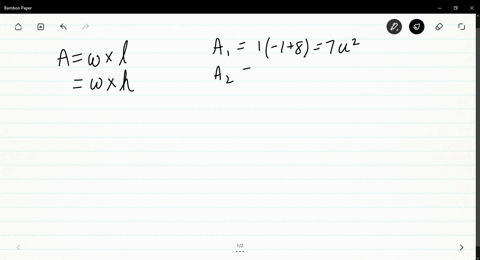 Bamboo Paper
A = w × l
= w × h
A₁ = 1(-1+8) = 7u²
A₂ =
1/2